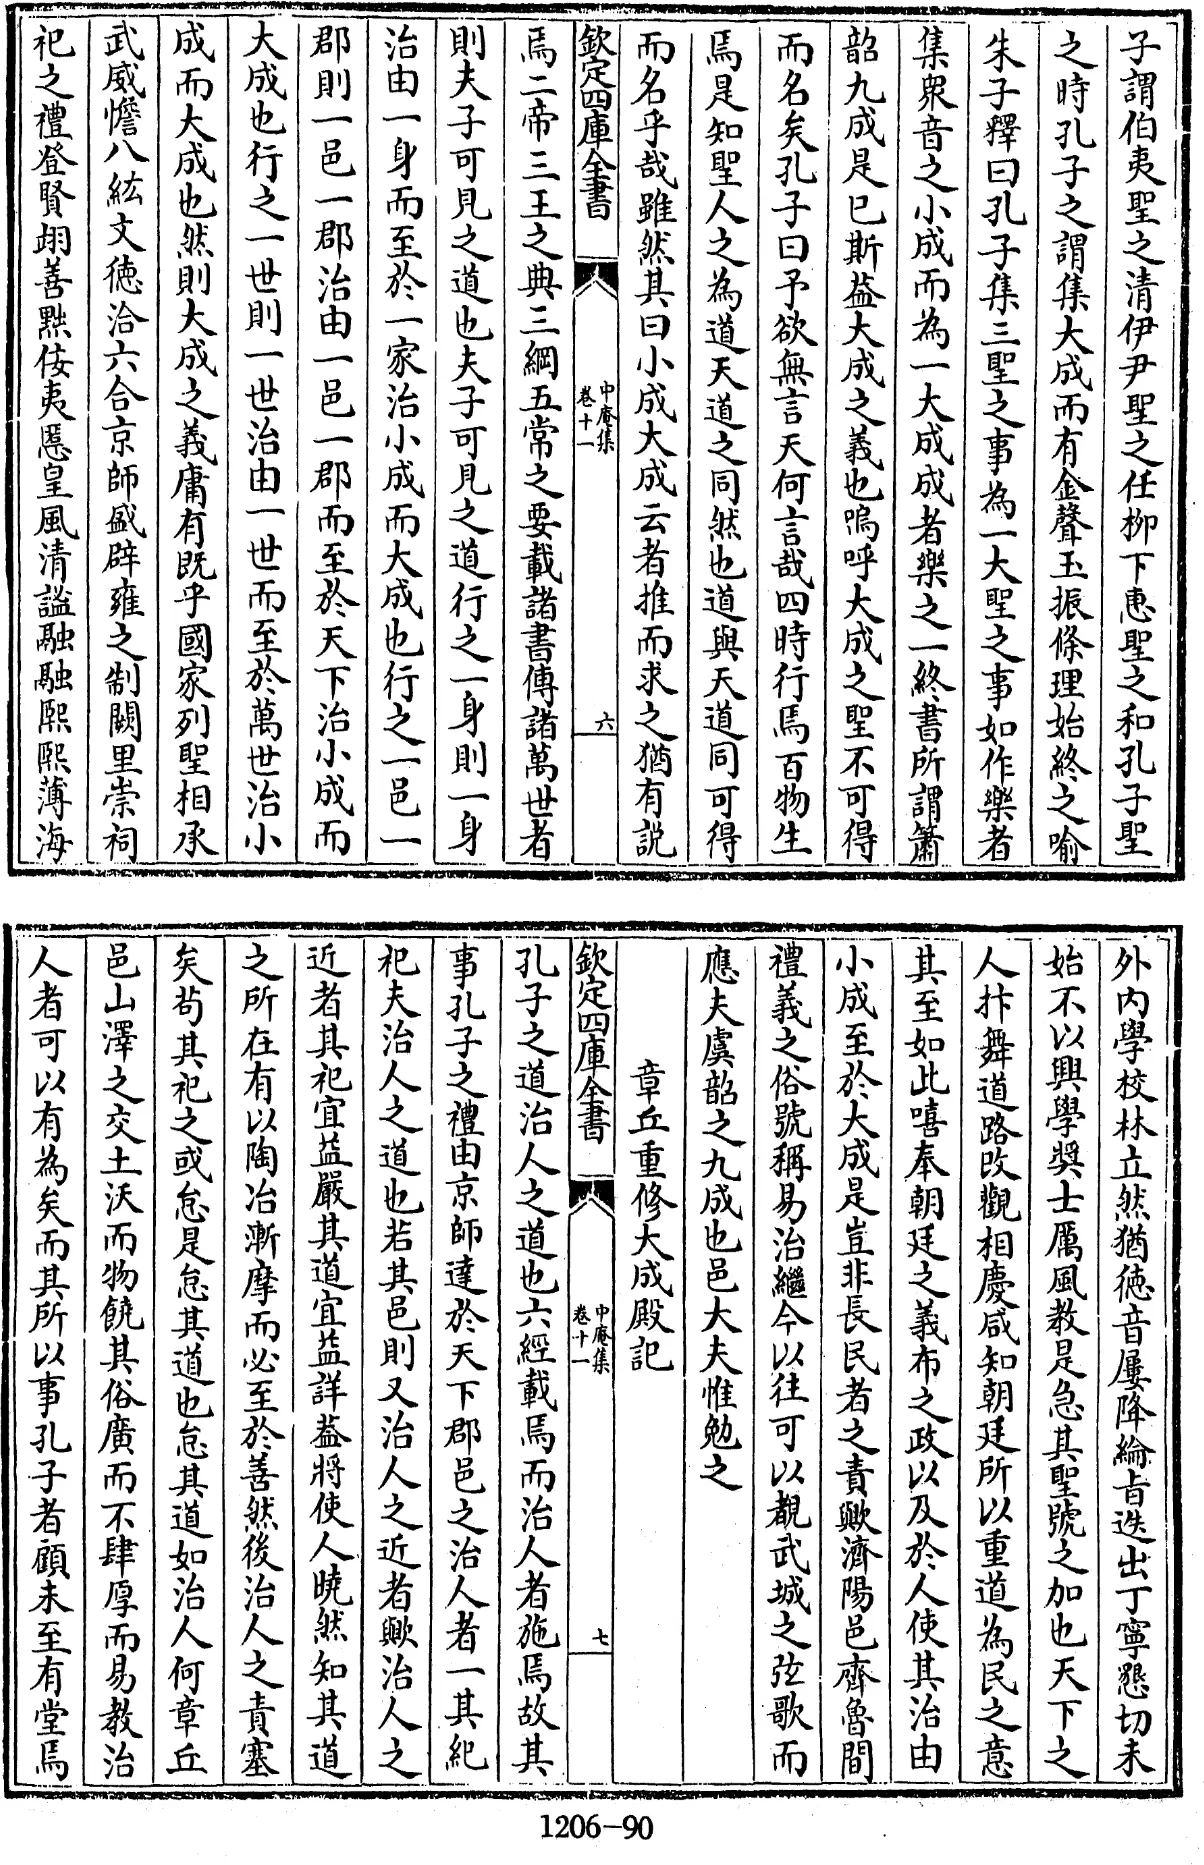 子謂伯夷聖之清伊尹聖之任柳下惠聖之和孔子聖
之時孔子之謂集大成而有金聲玉振條理始終之喻
朱子釋曰孔子集三聖之事為一大聖之事如作樂者
集衆音之小成而為一大成成者樂之一終書所謂簫
韶九成是已斯葢大成之義也嗚呼大成之聖不可得
而名矣孔子曰予欲無言天何言哉四時行焉百物生
焉是知聖人之為道天道之同然也道與天道同可得
而名乎哉雖然其曰小成大成云者推而求之猶有説
欽定四庫全書
中庵集
卷十一
六
焉二帝三王之典三綱五常之要載諸書傳諸萬世者
則夫子可見之道也夫子可見之道行之一身則一身
治由一身而至於一家治小成而大成也行之一邑一
郡則一邑一郡治由一邑一郡而至於天下治小成而
大成也行之一世則一世治由一世而至於萬世治小
成而大成也然則大成之義庸有既乎國家列聖相承
武威憺八紘文德洽六合京師盛辟雍之制闕里崇祠
祀之禮登賢翊善黜佞夷慝皇風清謐融融熙熙薄海
外内學校林立然猶德音屢降綸㫖迭出丁寧懇切未
始不以興學奬士厲風教是急其聖號之加也天下之
人抃舞道路改觀相慶咸知朝廷所以重道為民之意
其至如此嘻奉朝廷之義布之政以及於人使其治由
小成至於大成是豈非長民者之責歟濟陽邑齊魯間
禮義之俗號稱易治繼今以往可以覩武城之弦歌而
應夫虞韶之九成也邑大夫惟勉之
章丘重修大成殿記
欽定四庫全書
中庵集
卷十一
七
孔子之道治人之道也六經載焉而治人者施焉故其
事孔子之禮由京師達於天下郡邑之治人者一其紀
祀夫治人之道也若其邑則又治人之近者歟治人之
近者其祀宜益嚴其道宜益詳葢將使人曉然知其道
之所在有以陶冶漸摩而必至於善然後治人之責塞
矣茍其祀之或怠是怠其道也怠其道如治人何章丘
邑山澤之交土沃而物饒其俗廣而不肆厚而易教治
人者可以有為矣而其所以事孔子者顧未至有堂焉
1206-90